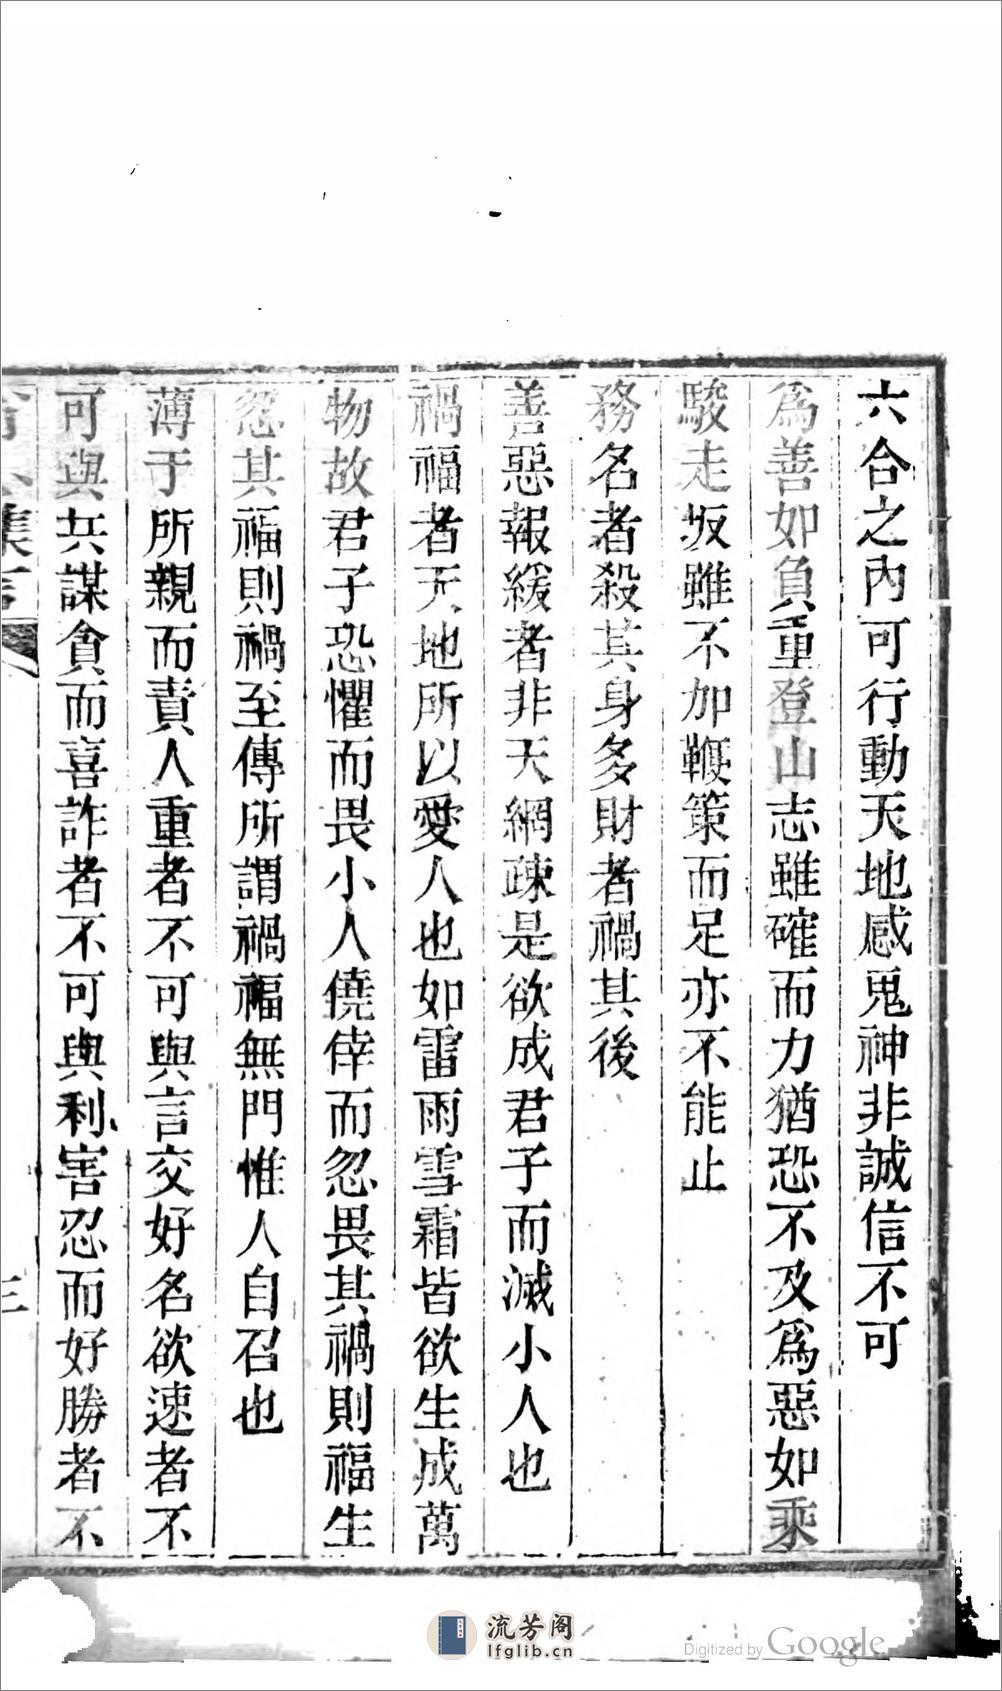 六合之內可行動天地感鬼神非誠信不可
爲善如負重登山志雖確而力猶恐不及爲惡如乘
駿走坂雖不加鞭策而足亦不能止
務名者殺其身多財者禍其後
善惡報緩者非天網疎是欲成君子而滅小人也
禍福者天地所以愛人也如雷雨雪霜皆欲生成萬
物故君子恐懼而畏小人僥倖而忽畏其禍則福生
忽其福則禍至傳所謂禍福無門惟人自召也
薄于所親而責人重者不可與言交好名欲速者不
可與兵謀貪而喜詐者不可與利害忍而好勝者不
集
三
流芳阁
lfglib.cn
Digitized by Google